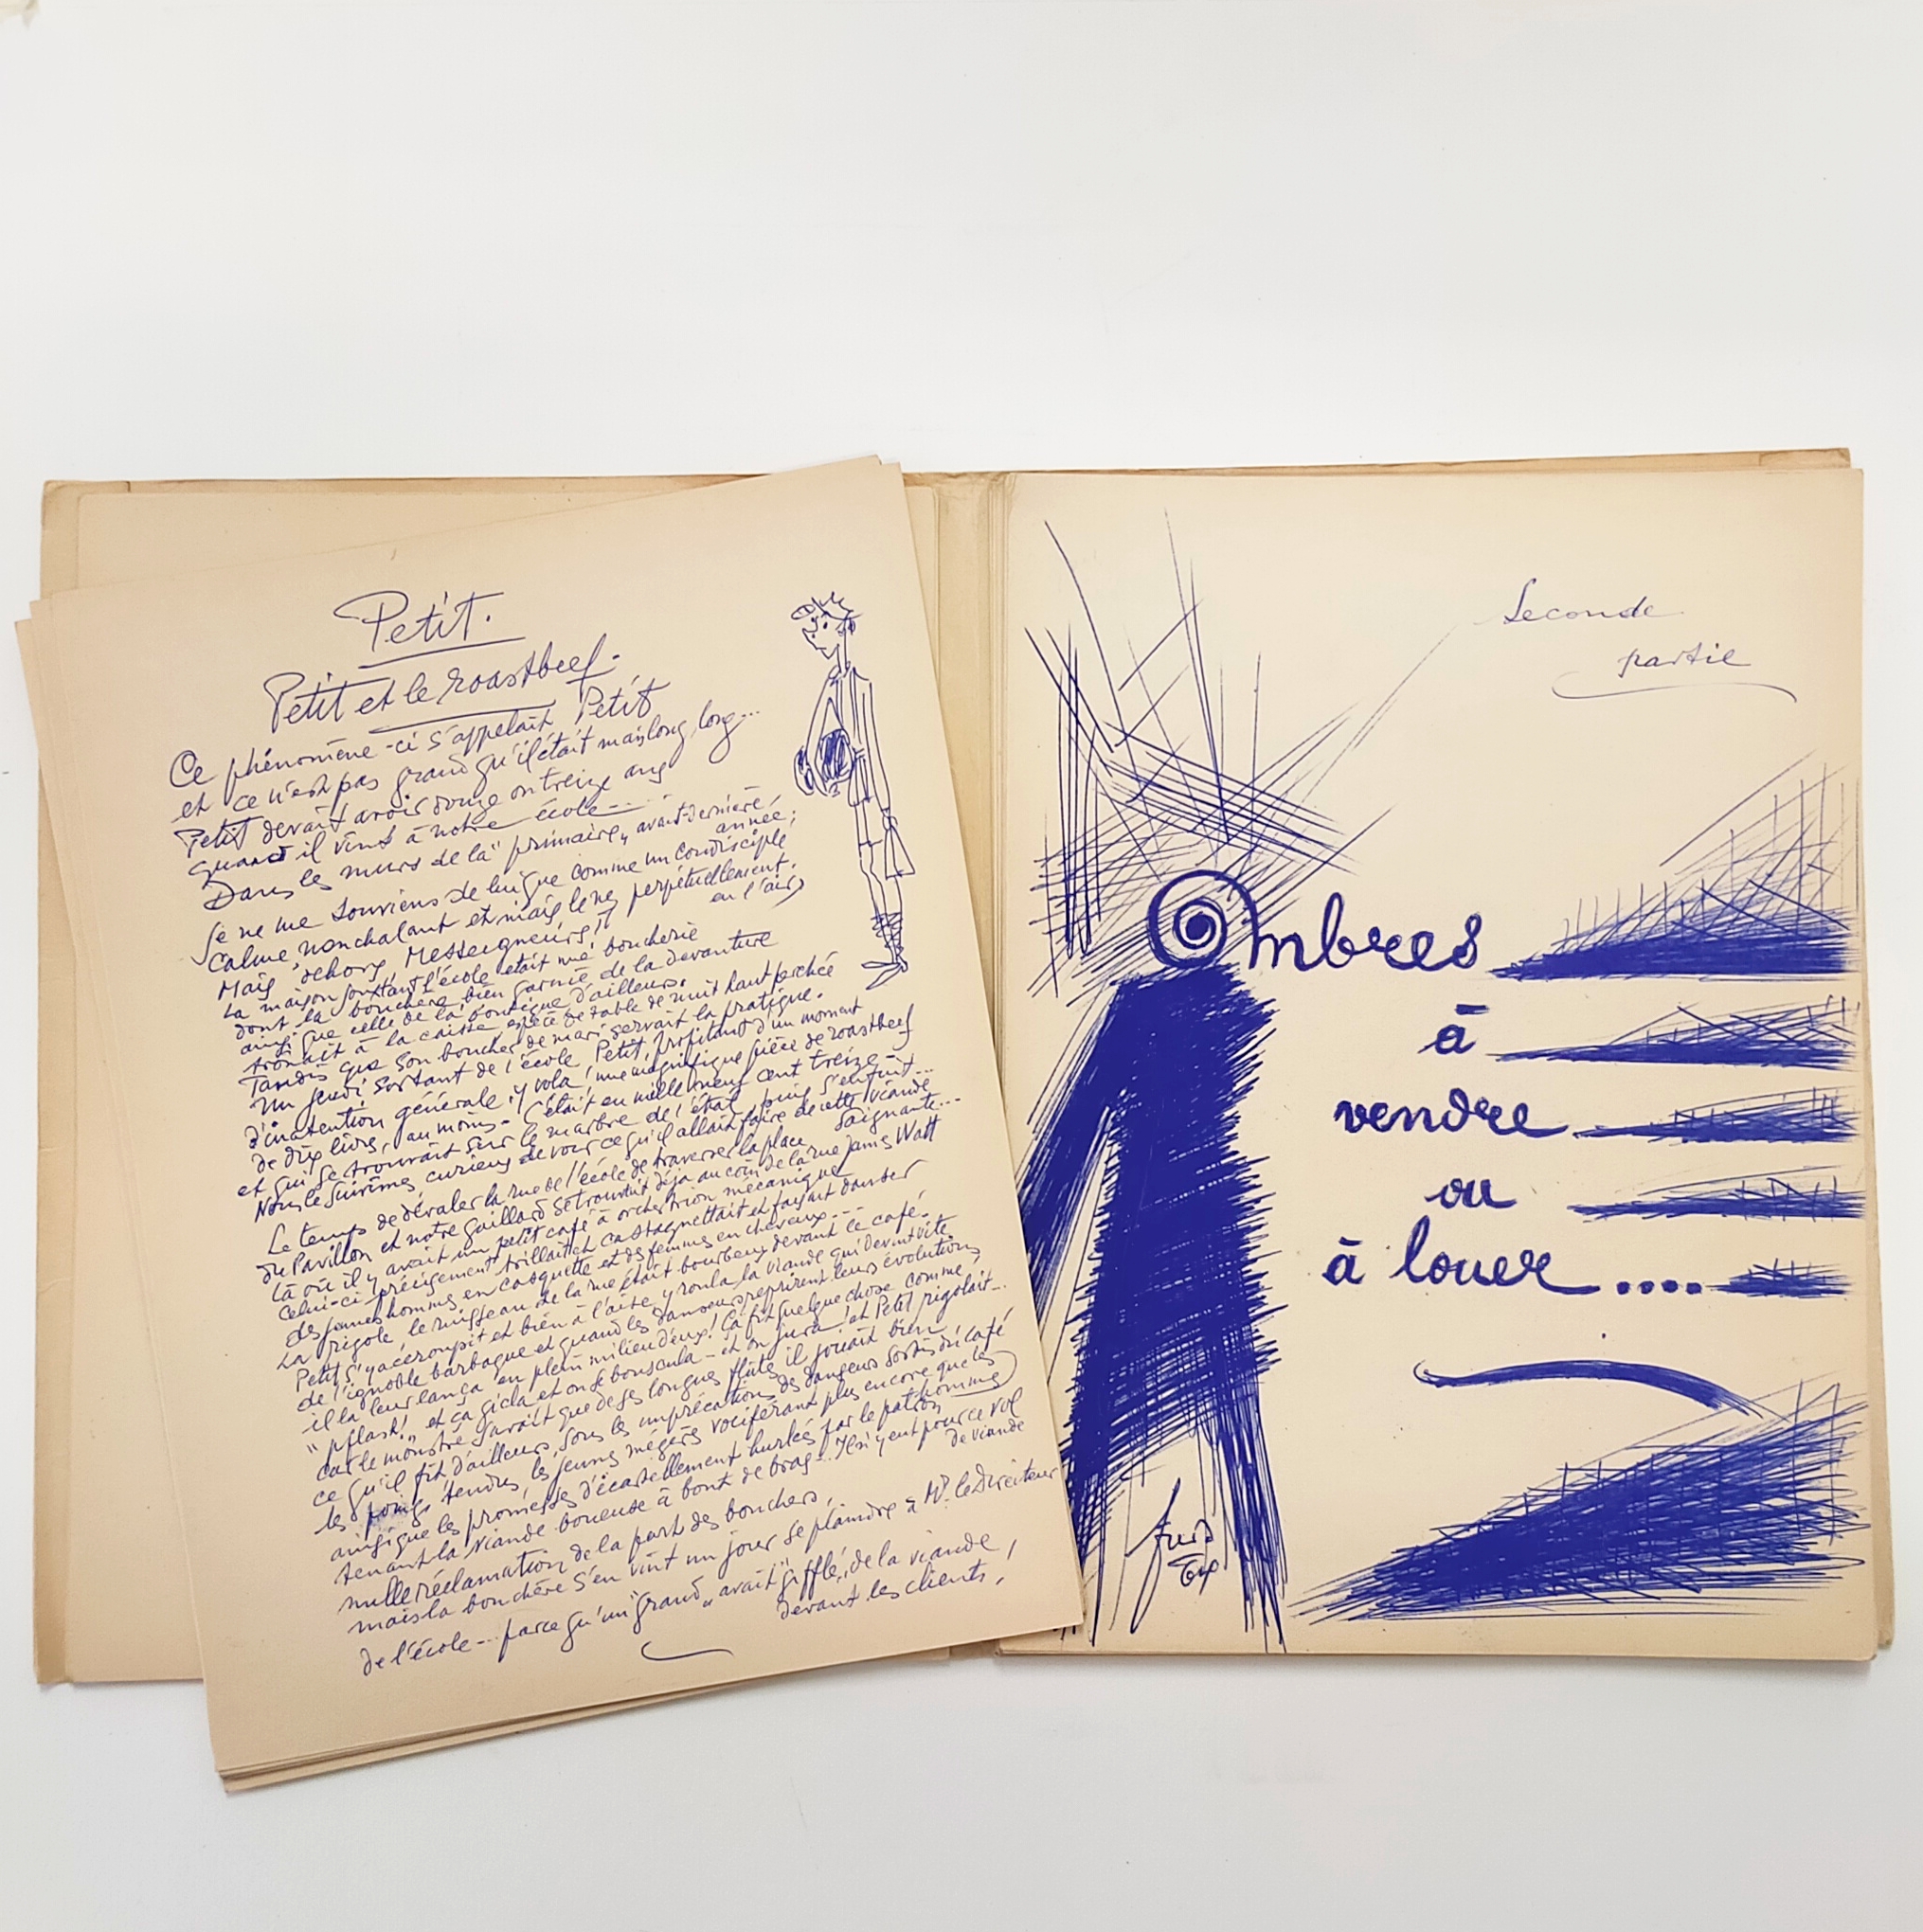 Petit.
Petit et le roastbeef.
Ce phénomène-ci s'appelait Petit
et ce n'est pas grand qu'il était mais long, long...
Petit devait avoir douze ou treize ans
quand il vint à notre école....
Dans les murs de la "primaire", avant-dernière
année;
Je ne me souviens de lui que comme un condisciple
calme, nonchalant et niais, le nez perpétuellement
en l'air,
Mais dehors, Messeigneurs!!
La maison joxtant l'école était une boucherie
dont la bouchère bien garnie de la devanture
ainsi que celle de la boutique d'ailleurs.
trônait à la caisse, espèce de table de nuit haut perchée
Tandis que son boucher de mari servait la pratique.
Un jeudi, sortant de l'école, Petit, profitant d'un moment
d'inatention générale, y vola une magnifique pièce de roastbeef
de dix livres, au moins - C'était en mille neuf cent treize -
et qui se trouvait sur le marbre de l'étal, puis s'enfuit...
Nous le suivîmes curieux de voir ce qu'il allait faire de cette viande
saignante...
Le temps de dévaler la rue de l'école de traverser la place
du Pavillon et notre gaillard se trouvait déjà au coin de la rue James Watt
là où il y avait un petit café à orchestrion mécanique
Celui-ci précisément trillait et castagnettait et faisait danser
des jeunes hommes en casquette et des femmes en cheveux...
La rigole le ruisseau de la rue était bourbeux devant le café.
Petit s'y accroupit et bien à l'aise, y roula la viande qui devint vite
de l'ignoble barbaque et quand les danseurs reprirent leurs évolutions,
il la leur lança en plein milieu d'eux! Ça fit quelque chose comme,
"pflash!" et ça gicla et on se bouscula - et on jura et Petit rigolait...
car le monstre savait que de ses longues flûte il jouait bien
ce qu'il fit d'ailleurs, sous les imprécations des danseurs sortis du café
les poings tendus, les jeunes mégères vociférant plus encore que les
hommes
ainsi que les promesses d'écartellement hurlés par le patron
tenant la viande boueuse à bout de bras... Il n'y eut pour ce vol
de viande
nulle réclamation de la part des bouchers,
mais la bouchère s'en vint un jour se plaindre à Mr. le Directeur
de l'école... parce qu'un "grand" avait "gifflé" de la viande
devant les clients,
Seconde
partie
Ombres
à
vendre
ou
à louer....